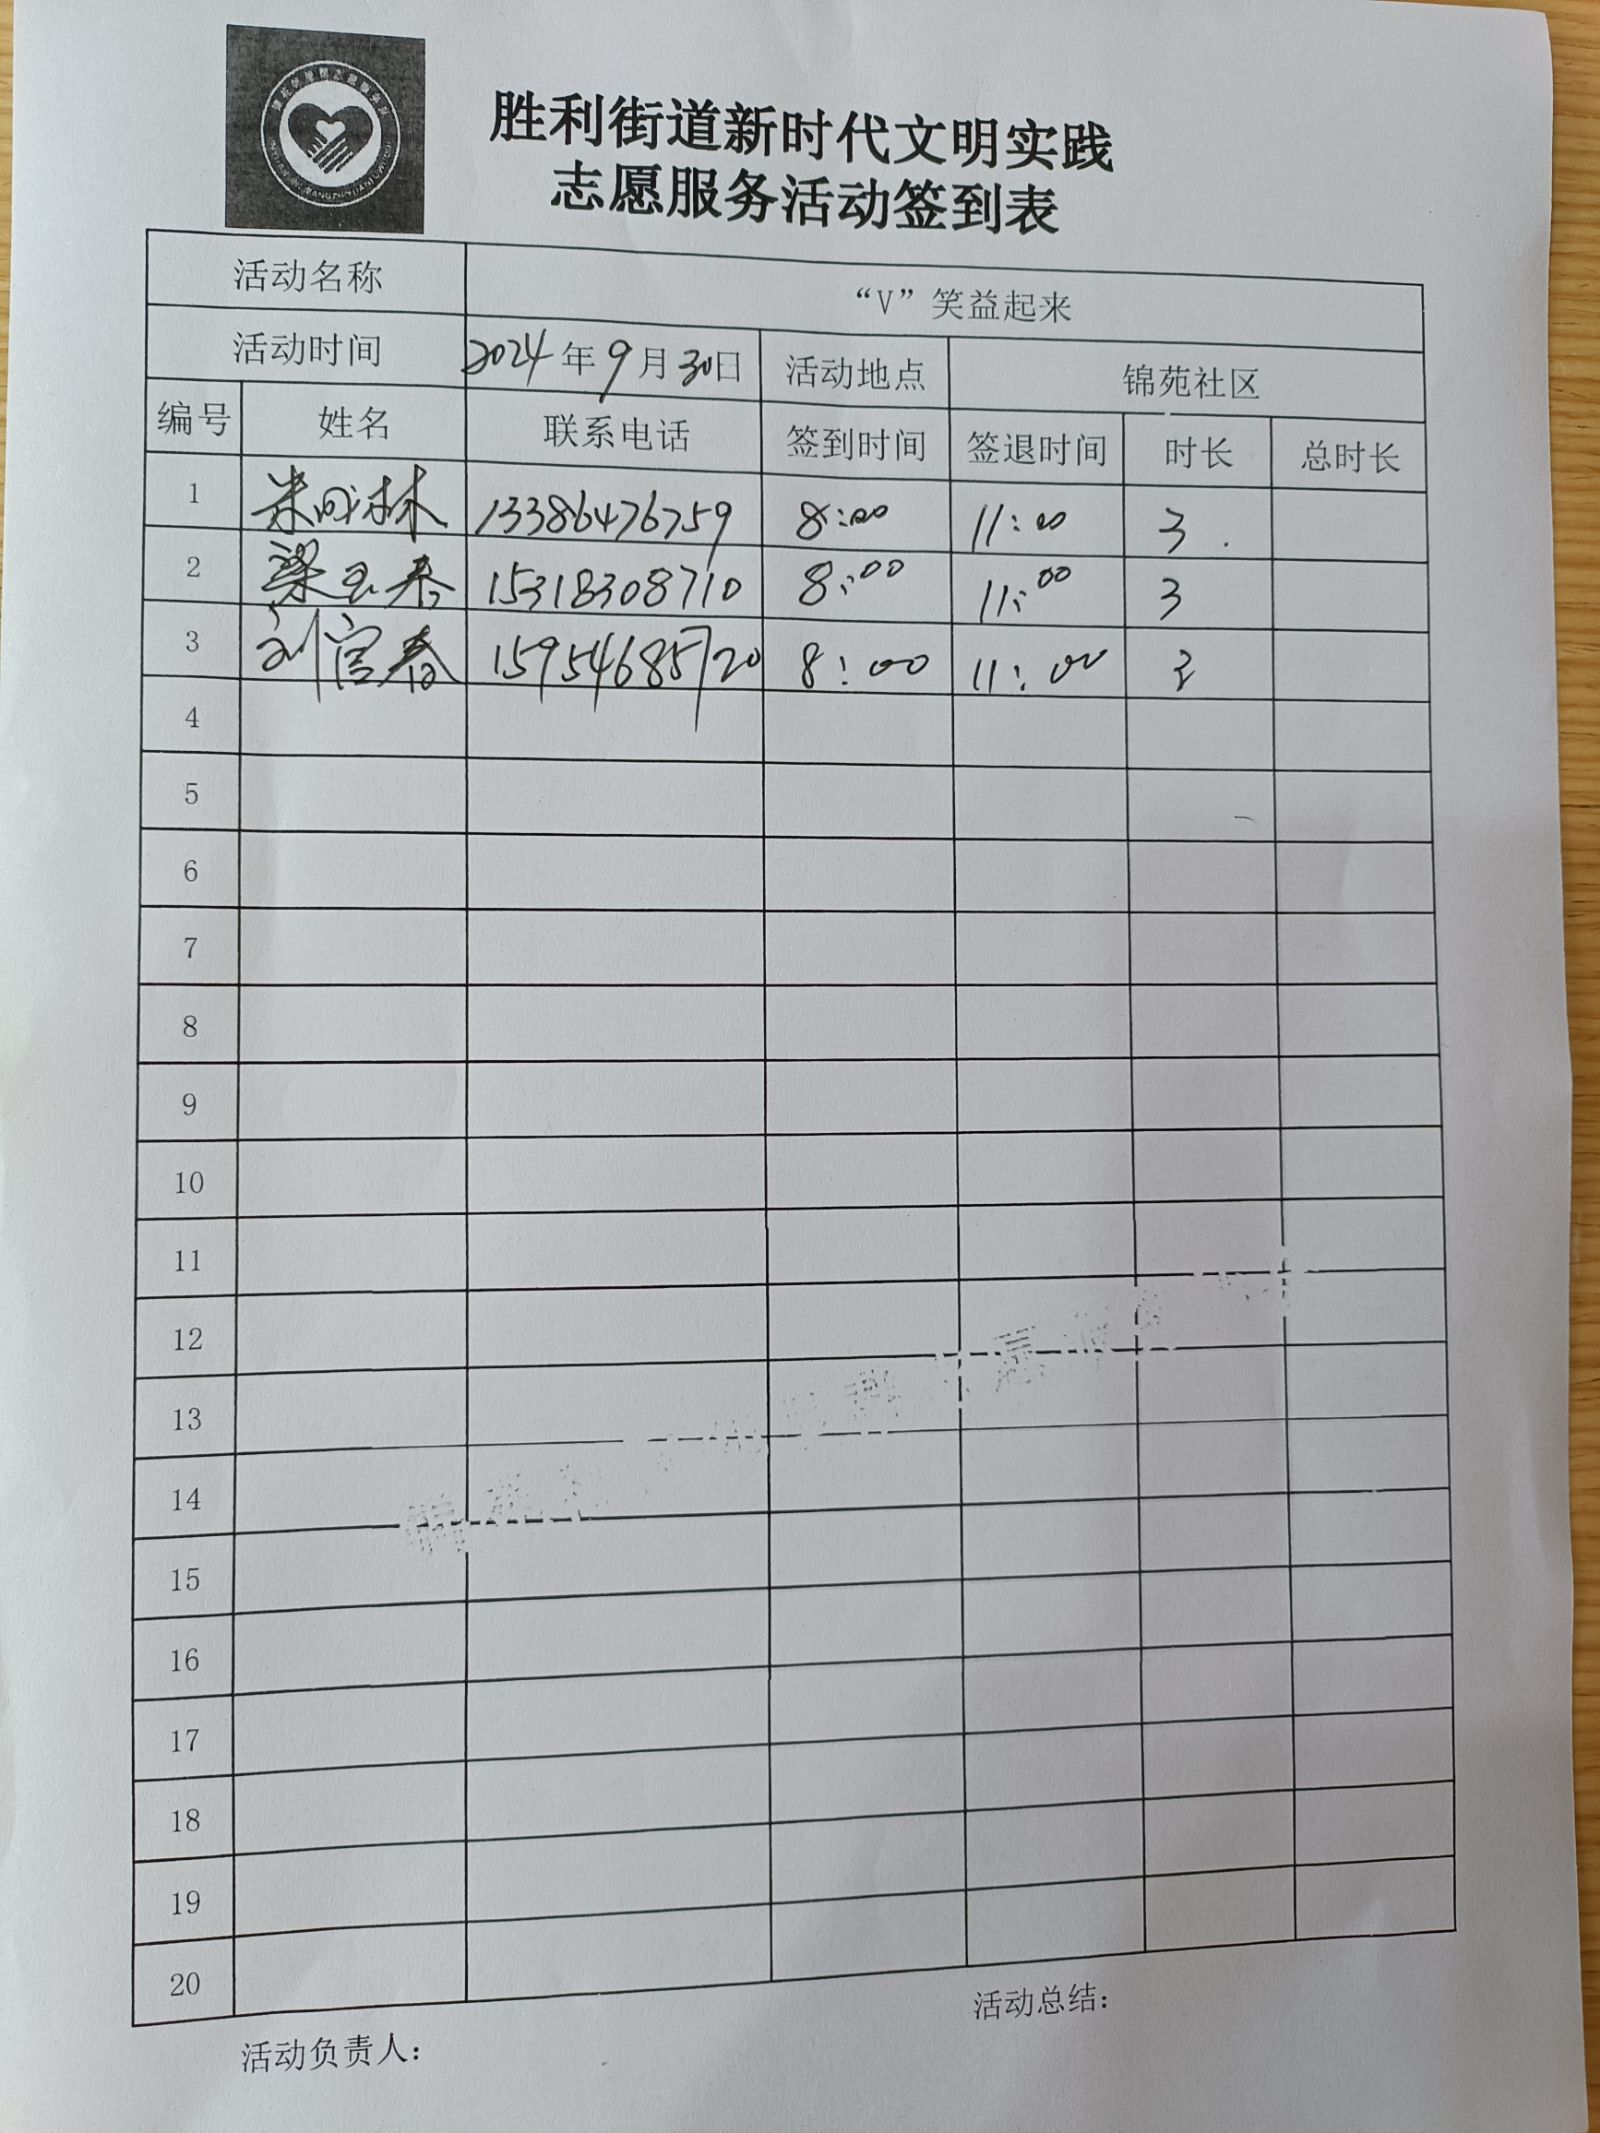 胜利街道新时代文明实践
志愿服务活动签到表
活动名称 “V”笑益起来
活动时间 2024年9月30日 活动地点 锦苑社区
编号 姓名 联系电话 签到时间 签退时间 时长 总时长
1 林 13386476759 8:00 11:00 3
2 梁玉春 15318308710 8:00 11:00 3
3 刘官春 15954685720 8:00 11:00 3
4
5
6
7
8
9
10
11
12
13
14
15
16
17
18
19
20
活动总结：
活动负责人：